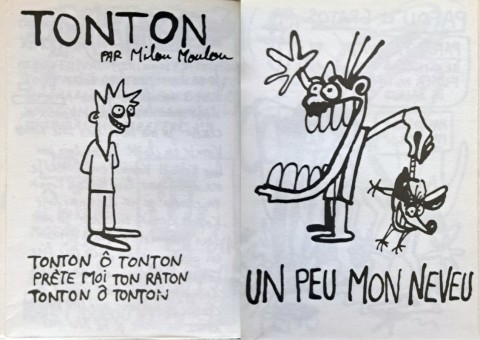 TONTON
PAR Milou Moulou
TONTON Ô TONTON
PRÊTE MOI TON RATON
TONTON Ô TONTON
UN PEU MON NEVEU